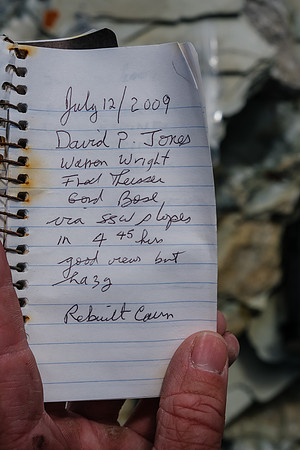 July 12/2009
David P. Jones
Watson Wright
Fred Theissen
Gord Bose
via SSW slopes
in 4 45 hrs
good views but
hazy
Rebuilt Cairn